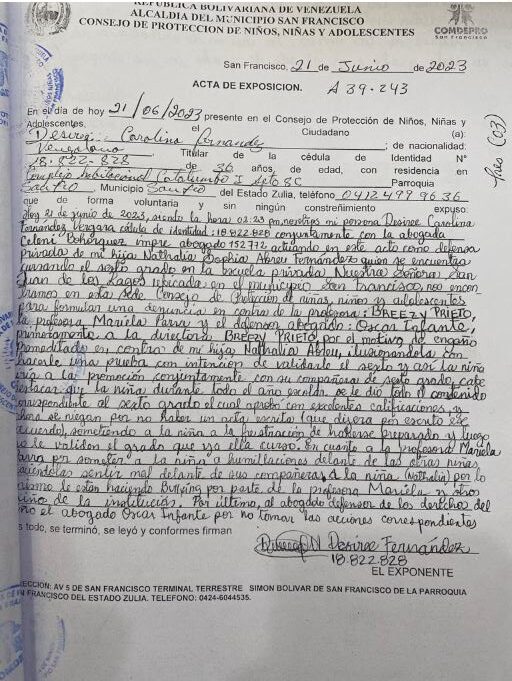 REPUBLICA BOLIVARIANA DE VENEZUELA
ALCALDIA DEL MUNICIPIO SAN FRANCISCO
CONSEJO DE PROTECCION DE NIÑOS, NIÑAS Y ADOLESCENTES
COMDEPRO
San Francisco
San Francisco, 21 de Junio de 2023
ACTA DE EXPOSICION. A 39.243
En el día de hoy 21/06/2023 presente en el Consejo de Protección de Niños, Niñas y
Adolescentes, el Ciudadano (a):
Desiree Carolina Fernandez de nacionalidad:
Venezolana Titular de la cédula de Identidad N°
18.822-828 de 36 años, de edad, con residencia en
Complejo habitacional Catatumbo I 8C Parroquia
San Fco, Municipio San Fco del Estado Zulia, teléfono 0412499 96 36
que de forma voluntaria y sin ningún constreñimiento expuso:
Hoy 21 de junio de 2023, siendo la hora 02:23 pm, mi persona Desiree Carolina
Fernández Vergara cédula de identidad: 18.822.828 conjuntamente con la abogada
impre abogado 152772 actuando en este acto como defensa
privada de mi hija Nathalia Sophia Abreu Fernández quien se encuentra
cursando el sexto grado en la escuela privada Nuestra Señora San
Juan de los Lagos ubicada en el municipio San francisco, nos encon
tramos en esta sede Consejo de Protección de niñas, niños y adolescentes
para formular una denuncia en contra de la profesora: BREEZY PRIETO,
la profesora Mariela Parra y el defensor abogado: Oscar Infante,
primeramente a la directora BREEZY PRIETO, por el motivo de engaño
premeditado en contra de mi hija Nathalia Abreu, ilusionandola con
hacerle una prueba con intención de validarle el sexto y así la niña
a la promoción conjuntamente con su compañeras de sexto grado, cabe
destacar que la niña durante todo el año escolar se le dio todo el contenido
correspondiente al sexto grado el cual aprobo con excelentes calificaciones, y
ahora se niegan por no haber un acta escrita (que dijera por escrito ese
acuerdo), sometiendo a la niña a la frustración de haberse preparado y luego
no le validen el grado que ya ella curso. En cuanto a la profesora Mariela
Parra por someter a la niña a humillaciones delante de las otras niñas
haciendolas sentir mal delante de sus compañeras a la niña (Nathalia) por lo
mismo le estan haciendo Bullying por parte de la profesora Mariela y otros
niño de la institución. Por último, al abogado defensor de los derechos del
niño el abogado Oscar Infante por no tomar las acciones correspondientes
Es todo, se terminó, se leyó y conformes firman
Desiree Fernández
18.822.828
EL EXPONENTE
DIRECCION: AV 5 DE SAN FRANCISCO TERMINAL TERRESTRE SIMON BOLIVAR DE SAN FRANCISCO DE LA PARROQUIA
SAN FRANCISCO DEL ESTADO ZULIA. TELEFONO: 0424-6044535.